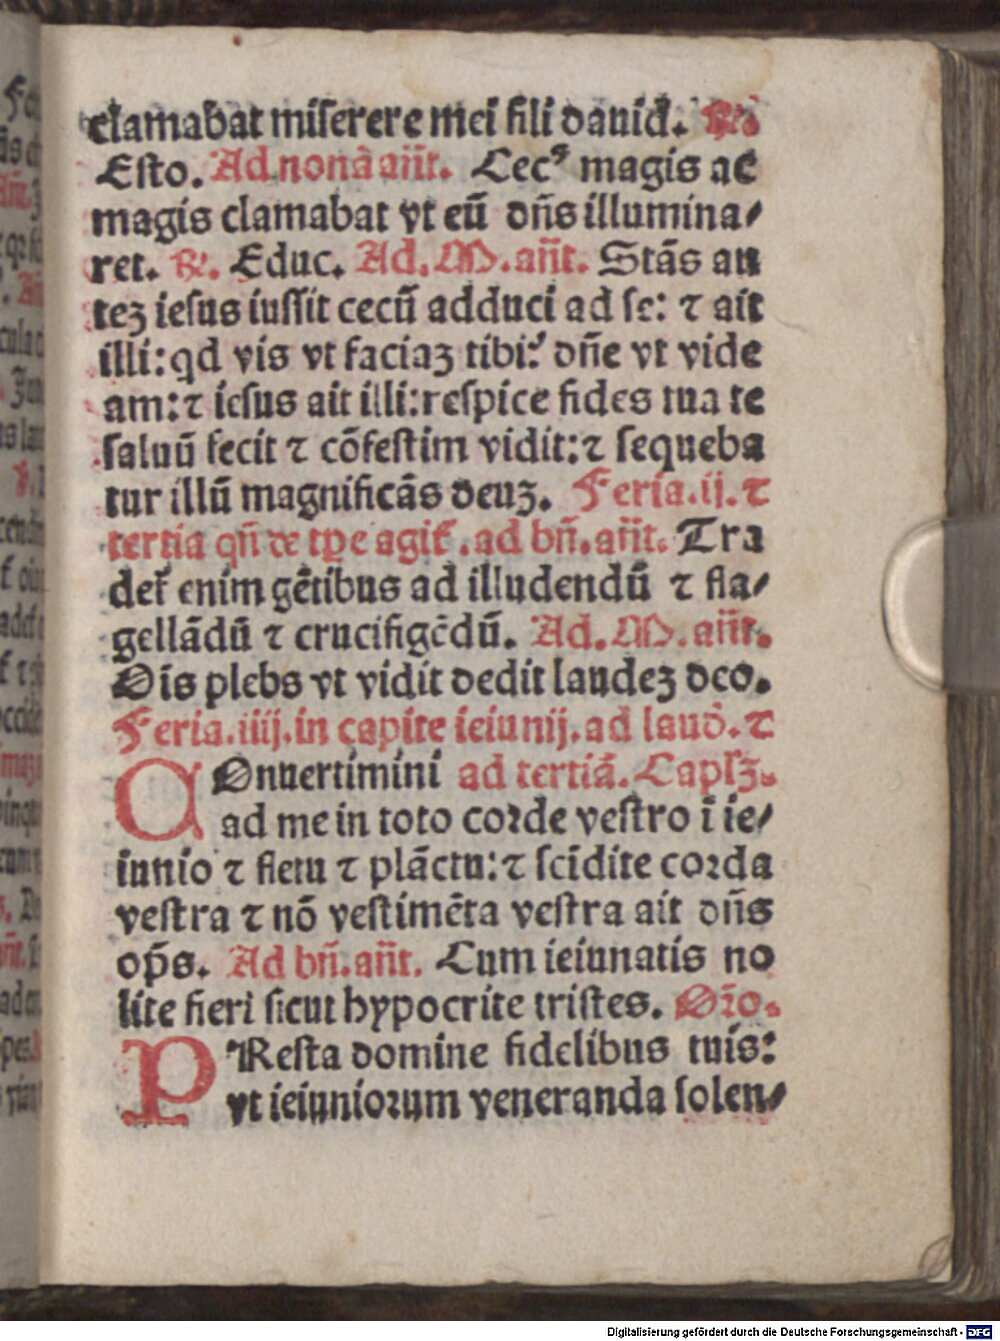 clamabat miserere mei fili dauid. R̃
Esto. Ad nonã añt. Cecꝰ magis ac
magis clamabat vt eũ dñs illumina/
ret. R̃. Educ. Ad. M. añt. Stãs au
teꝫ iesus iussit cecũ adduci ad se: ⁊ ait
illi: qd vis vt faciaꝫ tibi? dñe vt vide
am: ⁊ iesus ait illi: respice fides tua te
saluũ fecit ⁊ cõfestim vidit: ⁊ sequeba
tur illũ magnificãs deuꝫ. Feria. ij. ⁊
tertia qñ de tpe agit̃. ad bñ. añt. Tra
det̃ enim gẽtibus ad illudendũ ⁊ fla/
gellãdũ ⁊ crucifigẽdũ. Ad. M. añt.
Ois plebs vt vidit dedit laudeꝫ deo.
Feria. iiij. in capite ieiunij. ad laud̃. ⁊
COnuertimini ad tertiã. Capl̃ꝫ.
ad me in toto corde vestro ĩ ie/
iunio ⁊ fletu ⁊ plãctu: ⁊ scidite corda
vestra ⁊ nõ vestimẽta vestra ait dñs
op̃s. Ad bñ. añt. Cum ieiunatis no
lite fieri sicut hypocrite tristes. Or̃o.
PResta domine fidelibus tuis:
vt ieiuniorum veneranda solen/
Digitalisierung gefördert durch die Deutsche Forschungsgemeinschaft - DFG